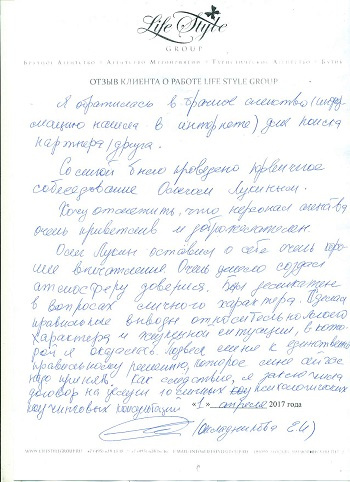 Life Style
GROUP
Брачное Агентство • Агентство Мероприятий • Туристическое Агентство •
ОТЗЫВ КЛИЕНТА О РАБОТЕ LIFE STYLE GROUP
Я обратилась в брачное агенство (инфор
мацию нашла в интернете) для поиска
партнера/друга.
Со мной было проведено первичное
собеседование Олегом Лукиным.
Хочу отметить, что персонал агенства
очень приветлив и доброжелателен.
Олег Лукин оставил о себе очень хоро-
шее впечатление. Очень умело создал
атмосферу доверия. Был деликатен
в вопросах личного характера. Сделал
правильные выводы относительно моего
характера и жизненной ситуации, в кото-
рой я оказалась. Подвел меня к единственно
правильному решению, которое мне сейчас
надо принять. Как следствие, я заключила
договор на услуги 10 психологических
консультаций «1» апреля 2017 года